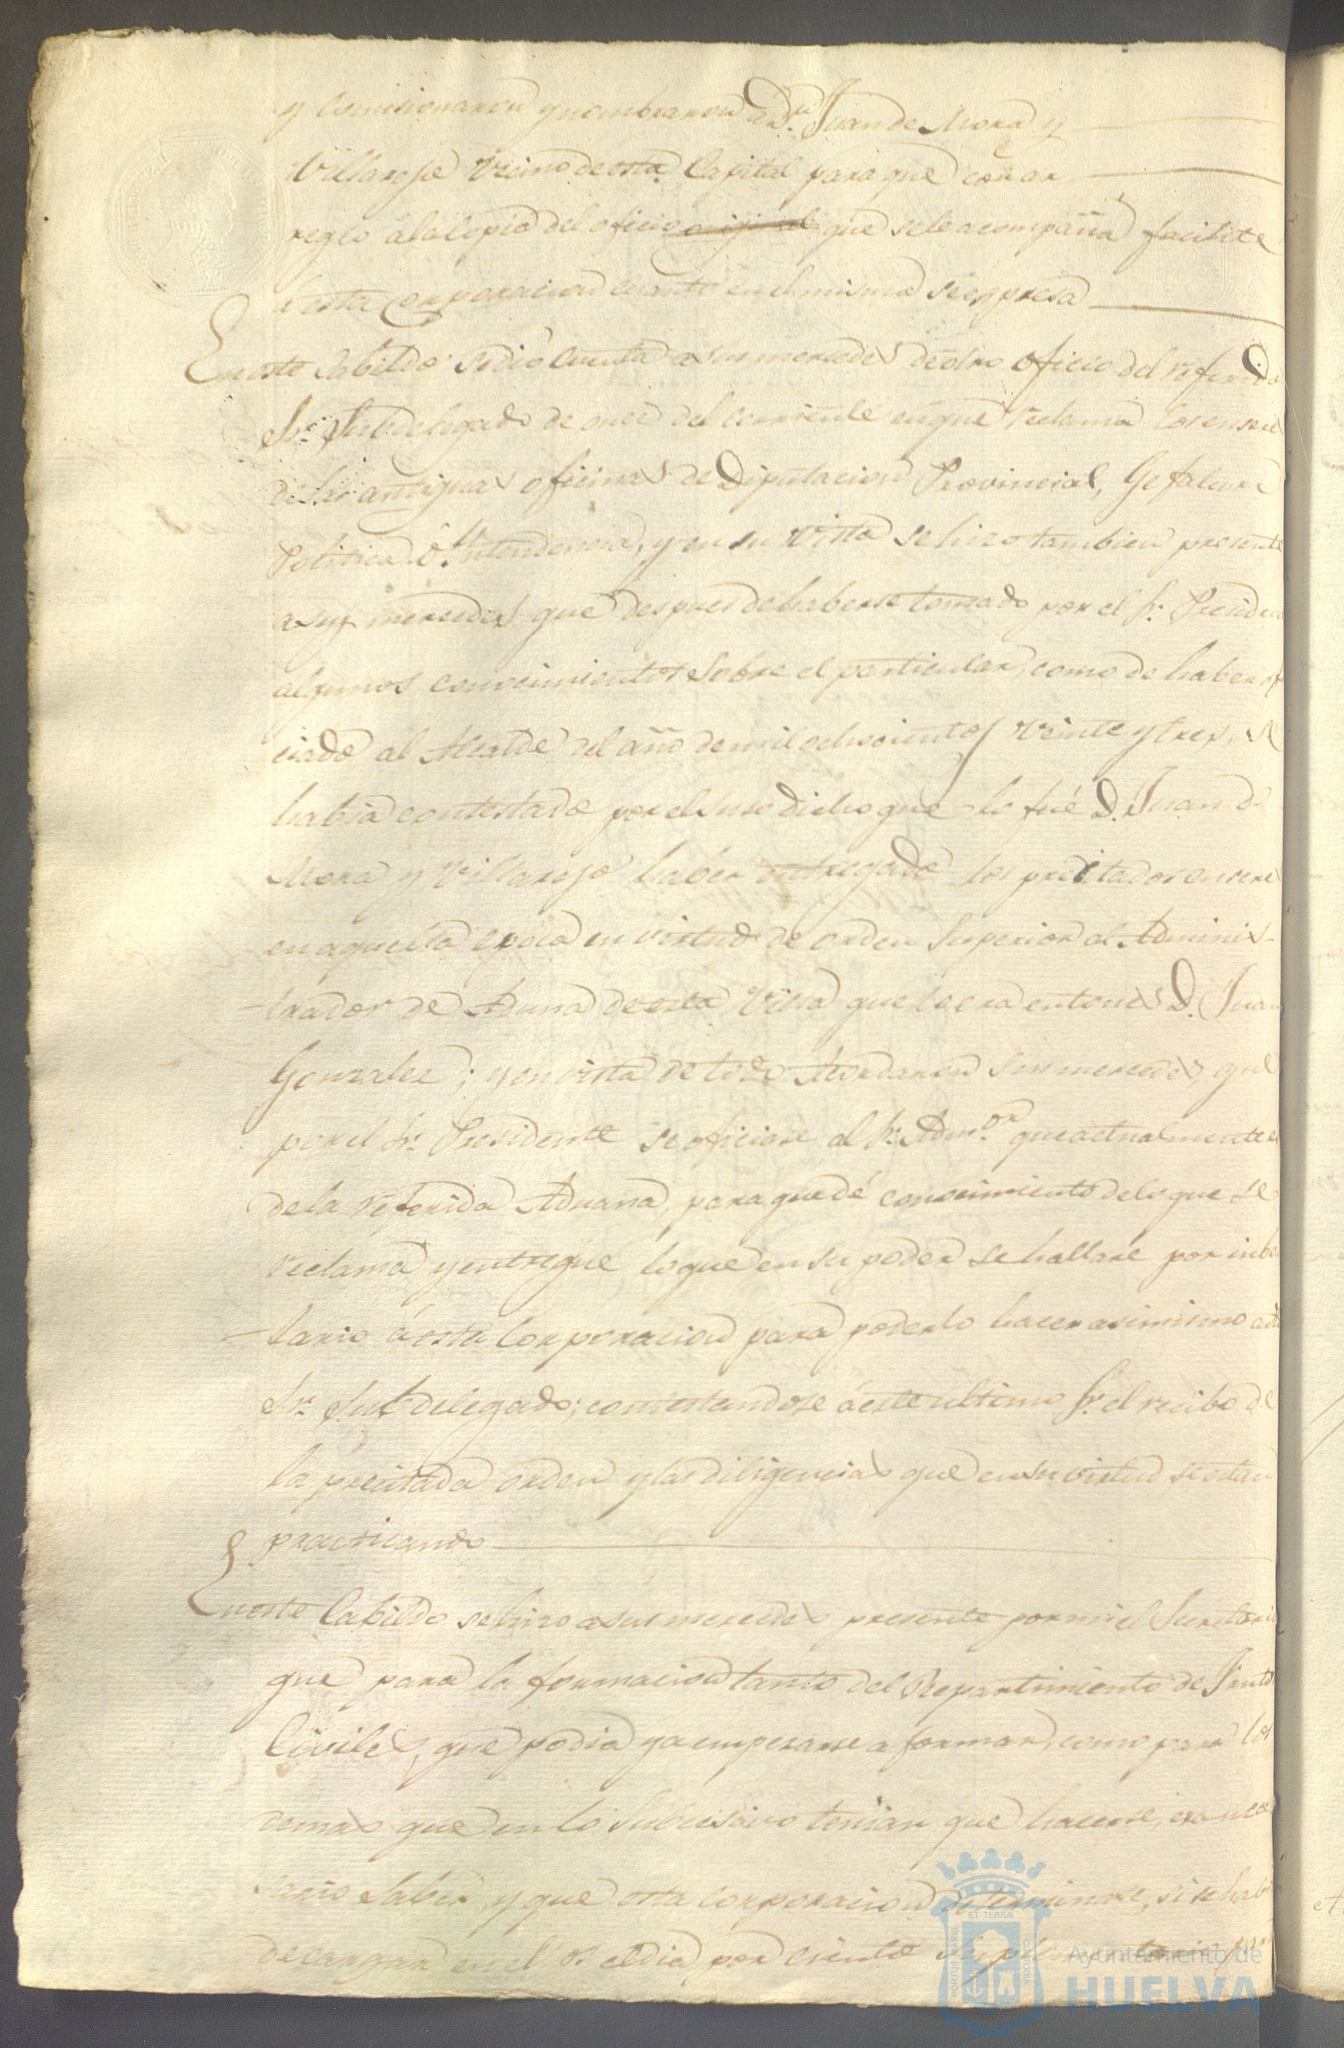 y Comisionaron y nombraron a Dn. Juan de Mora y
Villarejo Vecino de esta Capital para que con ar
reglo á la copia del oficio que se le acompaña facilite
a esta Corporacion cuanto en el mismo se espresa
En este Cabildo se dió cuenta a sus mercedes de otro oficio del referido
Sr. Subdelegado de once del corriente en que reclama los enseres
de las antiguas oficinas de Diputacion Provincial, Gefatura
Politica é Yntendencia, y en su vista se hizo tambien presente
a sus mercedes que despues de haberse tomado por el Sr. Presidente
algunos conocimientos sobre el particular, como de haber ofi
ciado al Alcalde del año de mil ochocientos veinte y tres, se
habia contestado por el suso dicho que lo fué D. Juan de
Mora y Villarejo haber entregado los precitados enseres
en aquella epoca en virtud de orden Superior al Adminis-
trador de Aduna de esta Villa que lo era entonces D. Juan
Gonzalez; y en vista de todo Acordaron sus mercedes que
por el Sr. Presidente se oficiase al Sr. Admor. que actualmente es
de la referida Aduana, para que dé conocimiento de lo que se
reclama y entregue lo que en su poder se hallare por inben
tario á esta Corporacion para poderlo hacer asimismo a dho
Sr. Subdelegado; contestandose á este ultimo Sr. el recibo de
la precitada orden y las diligencias que en su virtud se estan
practicando
En este Cabildo se hizo a sus mercedes presente por mi el Secretario
que para la formacion tanto del Repartimiento de Frutos
Civiles, que podia ya empezarse a formar, como para los
demas que en lo subcesivo tenian que hacerse, era nece
sario saber, y que esta corporacion determinase, si se habia
de cargar en el el dia por ciento
PORTUS MARIS
ET TERRAE
CUSTODIA
Ayuntamiento de
HUELVA